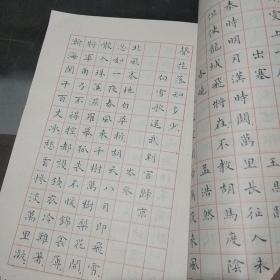 秦時明月漢時關萬里長人未
但使龍城飛將在不教胡馬度陰
春曉
孟浩然
花落知多少
白雪歌送武判官歸京
岑參
北風卷地白草折胡天八月即飛雪
忽如一夜春風來千樹萬樹梨花開
散入珠簾濕羅幕狐裘不暖錦衾薄
將軍角弓不得控都護鐵衣冷難著
瀚海闌干百丈冰愁雲慘淡萬里凝